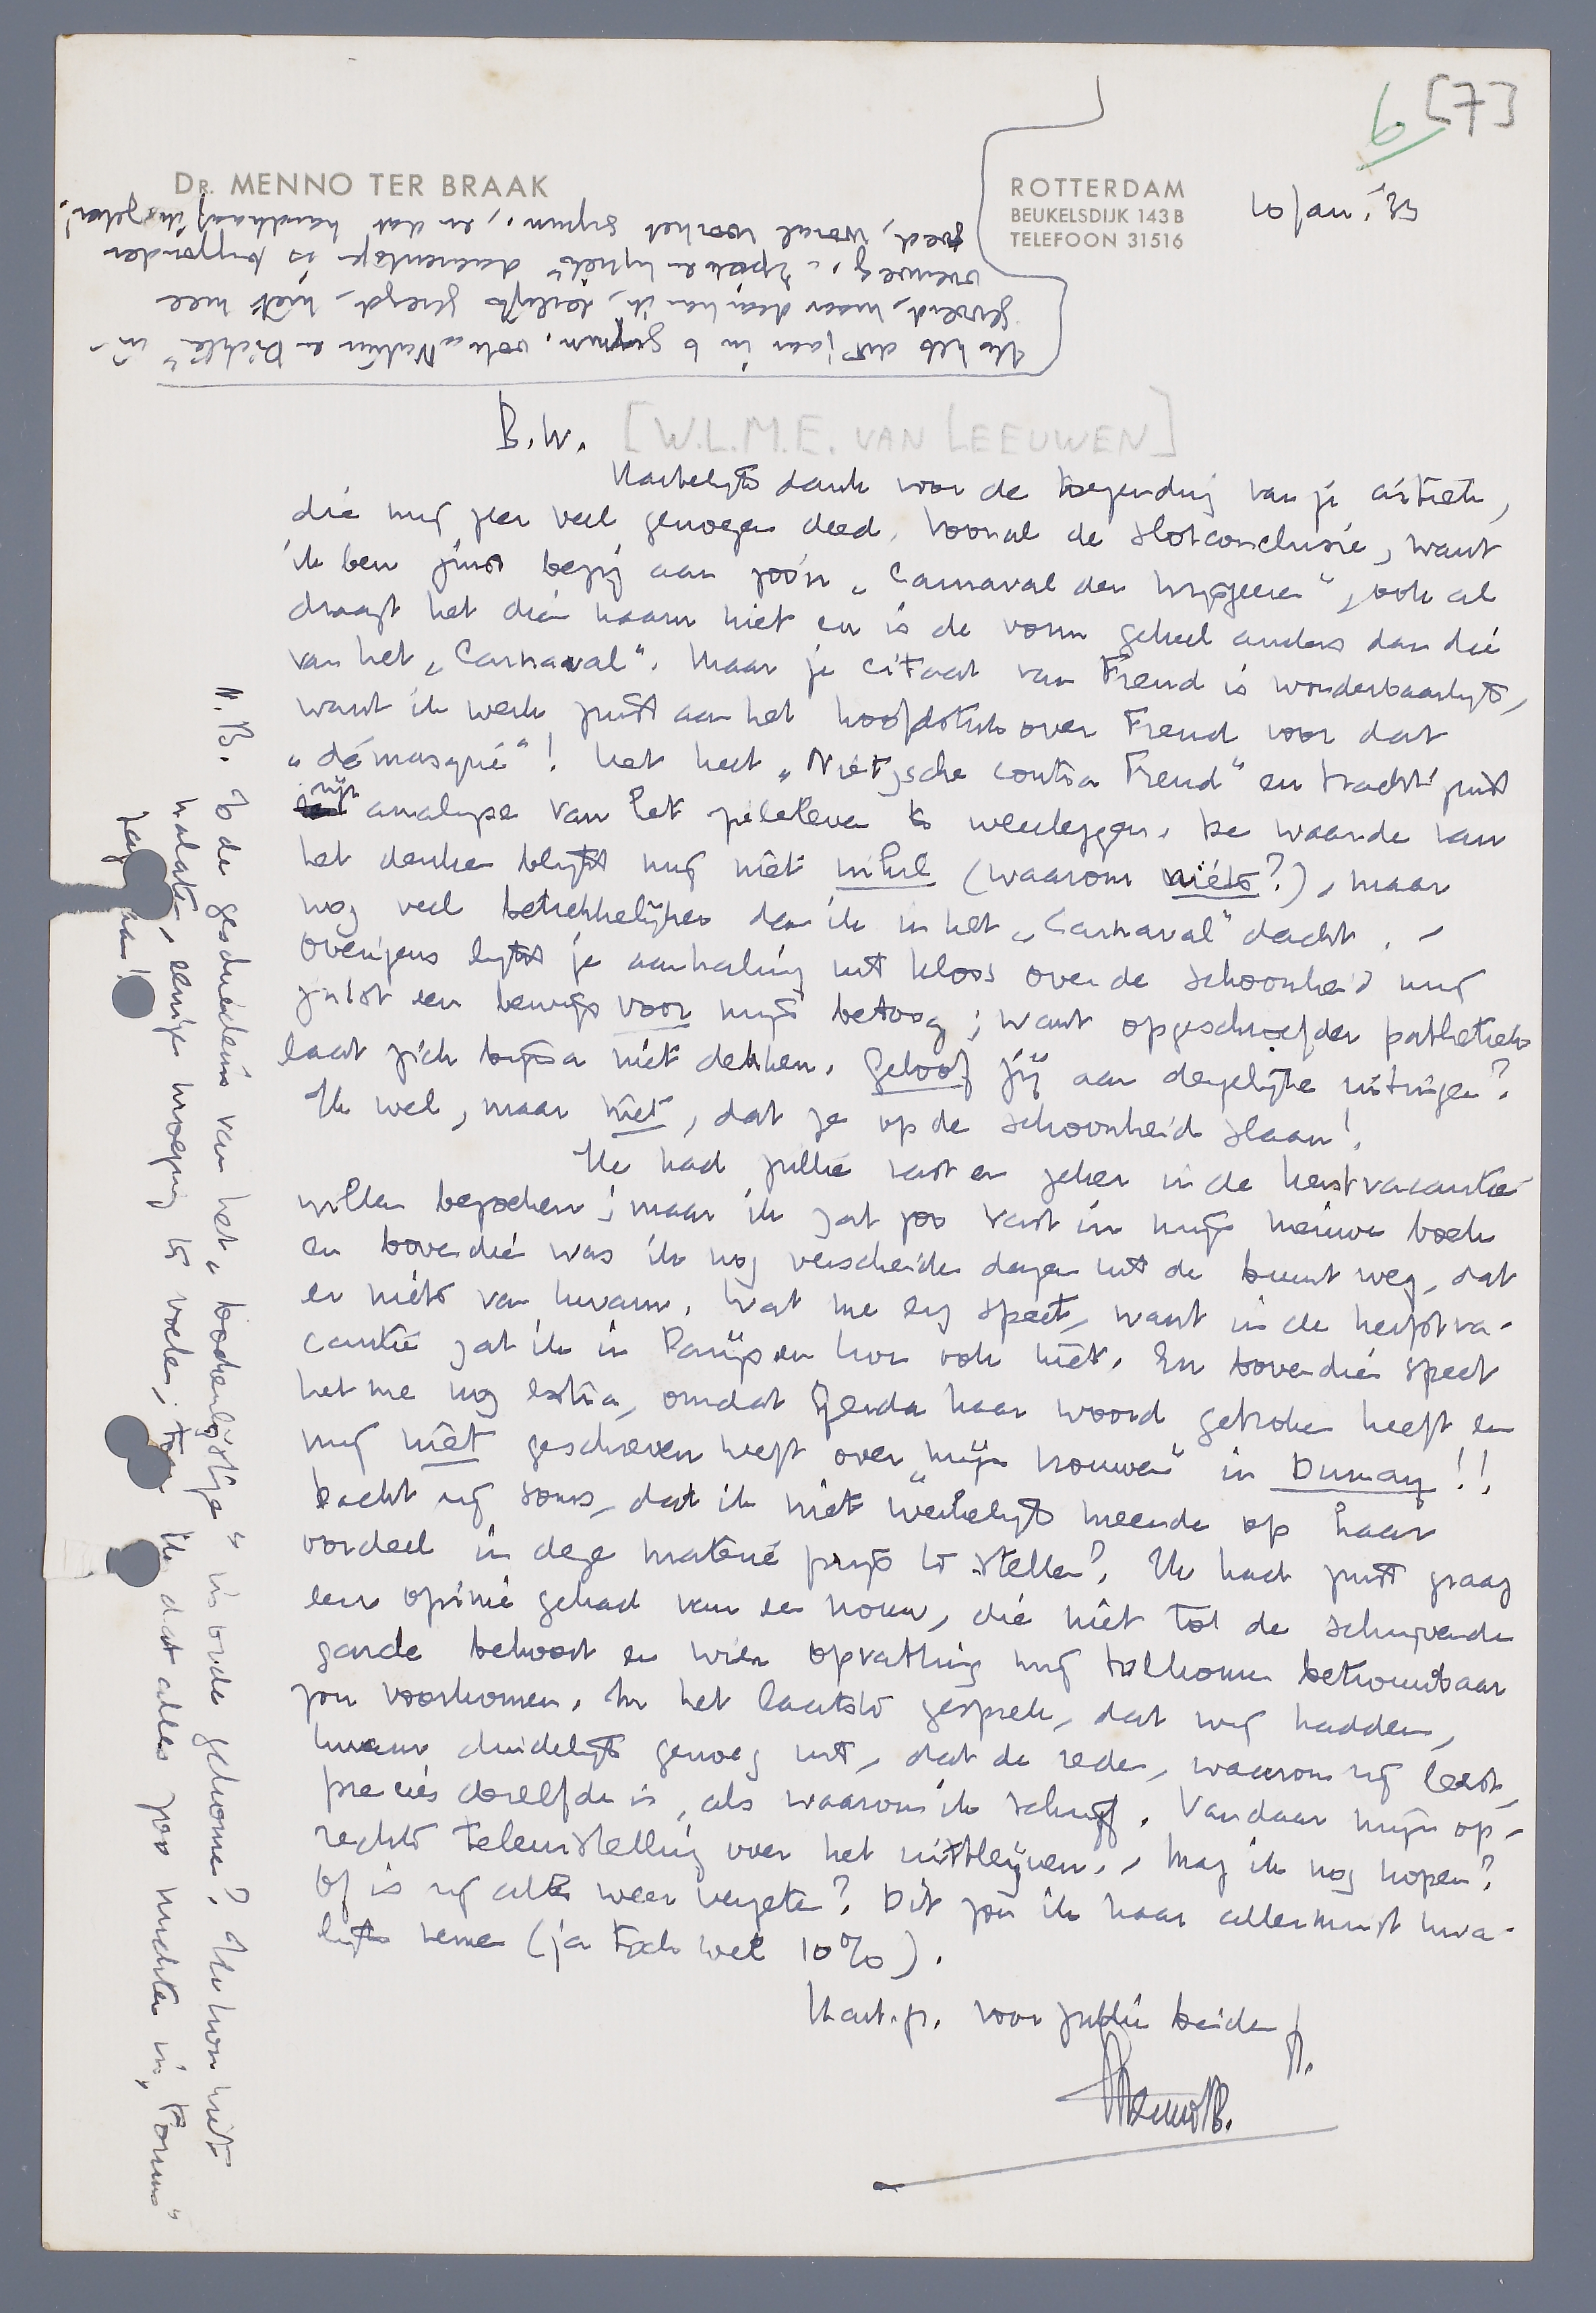 6 [7]
DR. MENNO TER BRAAK
ROTTERDAM
BEUKELSDIJK 143B
TELEFOON 31516
10 Jan. '33
B.W. [W.L.M.E. VAN LEEUWEN]
Hartelijk dank voor de toezending van je critiek,
die mij zeer veel genoegen deed. Vooral de slotconclusie, want
ik ben juist bezig aan zoo'n „Carnaval der hypotheses", ook al
draagt het dien naam niet en is de vorm geheel anders dan die
van het „Carnaval". Maar je citaat van Freud is wonderbaarlijk,
want ik werk juist aan het hoofdstuk over Freud voor dat
„démasqué"! Het heet „Nietzsche contra Freud" en tracht juist
zijn analyse van het zieleleven te weerleggen. De waarde van
het denken blijft mij niet nihil (waarom niets?), maar
nog veel betrekkelijker dan ik in het „Carnaval" dacht. –
Overigens lijkt je aanhaling uit Kloos over de schoonheid mij
juist een bewijs voor mijn betoog; want opgeschroefder pathetiek
laat zich bijna niet denken. Geloof jij aan dergelijke uitingen?
Ik wel, maar niet, dat ze op de schoonheid slaan!
Ik had jullie vast en zeker in de kerstvacantie
willen bezoeken; maar ik zat zoo vast in mijn nieuwe boek
en bovendien was ik nog verscheiden dagen uit de buurt weg, dat
er niets van kwam. Wat me erg speet, want in de herfstva-
cantie zat ik in Parijs en kon ook niet. En bovendien speet
het me nog extra, omdat Gerda haar woord gebroken heeft en
mij niet geschreven heeft over „mijn vrouwen" in Dumay!!
Dacht zij soms, dat ik niet werkelijk meende op haar
oordeel in deze materie prijs te stellen? Ik had juist graag
een opinie gehad van een vrouw, die niet tot de schrijvende
garde behoort en wier opvatting mij volkomen betrouwbaar
zou voorkomen. In het laatste gesprek, dat wij hadden,
kwam duidelijk genoeg uit, dat de reden, waarom zij leest,
precies dezelfde is, als waarom ik schrijf. Vandaar mijn op-
rechte teleurstelling over het uitblijven. – Mag ik nog hopen?
Of is zij alles weer vergeten? Dit zou ik haar allerminst kwa-
lijk nemen (ja toch wel 10%).
Hart. gr. voor jullie beiden
Menno tB.
N.B. Is de geschiedenis van het „boekenlijstje" in orde gekomen? Ik kon niet
nalaten, eenige wroeging te voelen, toen ik dat alles zoo nuchter in „Forum"
zag staan!
Ik heb dit jaar in 5 gymn. ook „Natuur en Dichter" in-
gevoerd, maar daar kan ik, eerlijk gezegd, niet mee
overweg. „Epiek en lyriek" daarentegen is bijzonder
goed, vooral voor het gymn., en dat handhaaf ik zeker!